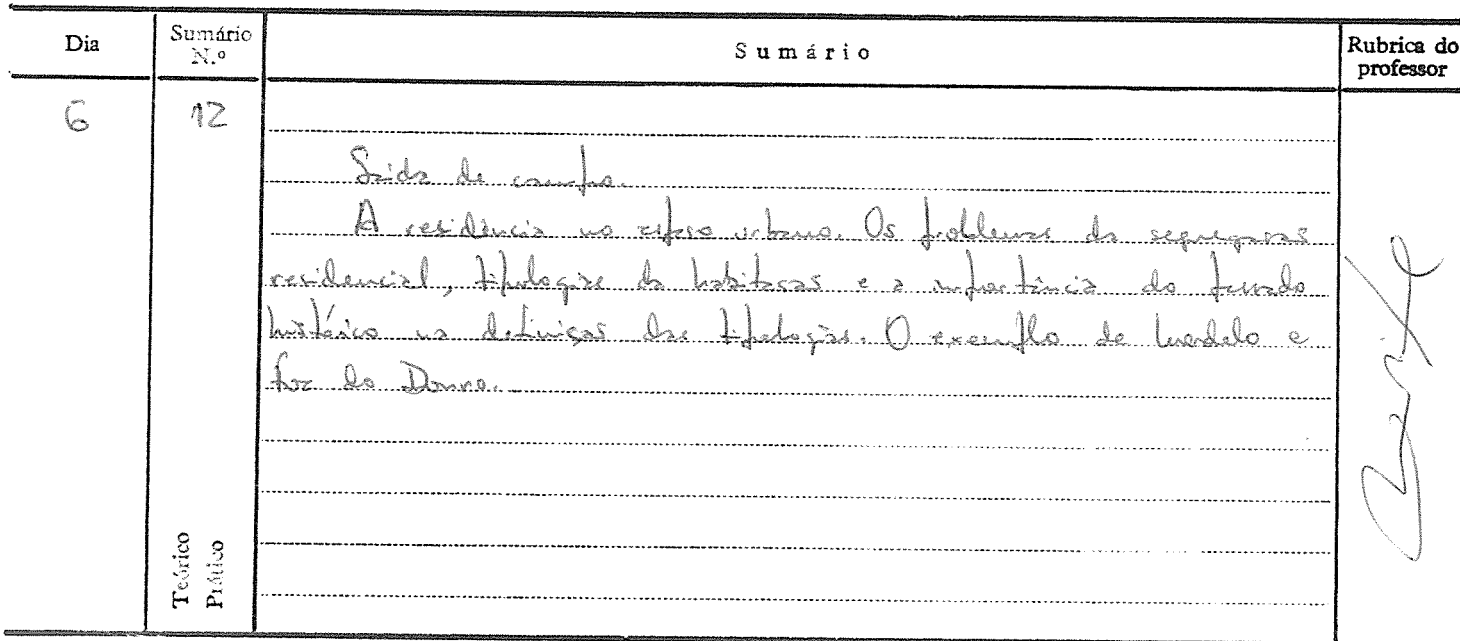 Dia
Sumário N.º
Sumário
Rubrica do professor
6
12
Saída de campo.
A residência no espaço urbano. Os problemas da segregação
residencial, tipologias da habitação e a importância do
histórico na definição das tipologias. O exemplo de Lordelo e
Foz do Douro.
Teórico
Prático